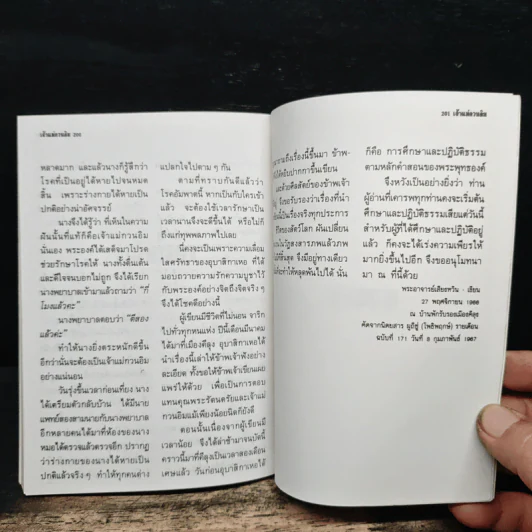 เจ้าแม่กวนอิม 200
พลาดมาก และแล้วนางก็รู้สึกว่า
โรคที่เป็นอยู่ได้หายไปจนหมด
สิ้น เพราะร่างกายได้หายเป็น
ปกติอย่างน่าอัศจรรย์
นางจึงได้รู้ว่า ที่เห็นในความ
ฝันนั้นที่แท้ก็คือเจ้าแม่กวนอิม
นั่นเอง พระองค์ได้เสด็จมาโปรด
ช่วยรักษาโรคให้ นางทั้งตื่นเต้น
และดีใจจนบอกไม่ถูก จึงได้เรียก
นางพยาบาลเข้ามาแล้วถามว่า "กี่
โมงแล้วคะ"
นางพยาบาลตอบว่า "ตีสอง
แล้วค่ะ"
ทำให้นางยิ่งตระหนักดีขึ้น
อีกว่านั่นจะต้องเป็นเจ้าแม่กวนอิม
อย่างแน่นอน
วันรุ่งขึ้นเวลาก่อนเที่ยง นาง
ได้เตรียมตัวกลับบ้าน ได้มีนาย
แพทย์สองสามนายกับนางพยาบาล
อีกหลายคนได้มาที่ห้องของนาง
หมอได้ตรวจแล้วตรวจอีก ปรากฏ
ว่าร่างกายของนางได้หายเป็น
ปกติแล้วจริง ๆ ทำให้ทุกคนต่าง
แปลกใจไปตาม ๆ กัน
ตามที่ทราบกันดีแล้วว่า
โรคอัมพาตนี้ หากเป็นกับใครเข้า
แล้ว จะต้องใช้เวลารักษาเป็น
เวลานานจึงจะดีขึ้นได้ หรือไม่ก็
ถึงแก่ทุพพลภาพไปเลย
นี่คงจะเป็นเพราะความเลื่อม
ใสศรัทธาของอุบาสิกาเหอ ที่ได้
มอบถวายความรักความบูชาไว้
กับพระองค์อย่างจริงจังจริงๆ
จึงได้โชคดีอย่างนี้
ผู้เขียนมีชีวิตที่ไม่นอน จาริก
ไปทั่วทุกหนแห่ง ปีนี้เดือนมีนาคม
ได้มาที่เมืองคีลุง อุบาสิกาเหอได้
นำเรื่องนี้เล่าให้ข้าพเจ้าฟังอย่าง
ละเอียด ทั้งขอให้ข้าพเจ้าเขียนเผย
แพร่ให้ด้วย เพื่อเป็นการตอบ
แทนคุณพระรัตนตรัยและเจ้าแม่
กวนอิมแม้เพียงน้อยนิดก็ยังดี
ตอนนั้นเนื่องจากผู้เขียนมี
เวลาน้อย จึงได้ล่าช้ามาจนบัดนี้
คราวนี้มาที่คีลุงเป็นเวลาสองเดือน
เศษแล้ว วันก่อนอุบาสิกาเหอได้
201 เจ้าแม่กวนอิม
ถามถึงเรื่องนี้ขึ้นมา ข้าพ-
ได้หยิบปากกาขึ้นเขียน
และด้วยศีลสัตย์ของข้าพเจ้า
จึงขอรับรองว่าเรื่องที่นำ
นี้เป็นเรื่องจริงทุกประการ
สัตว์โลก ผันเปลี่ยน
วัฏสงสารภพแล้วภพ
ที่สิ้นสุด ซึ่งมีอยู่ทางเดียว
ทำให้หลุดพ้นไปได้ นั่น
ก็คือ การศึกษาและปฏิบัติธรรม
ตามหลักคำสอนของพระพุทธองค์
จึงหวังเป็นอย่างยิ่งว่า ท่าน
ผู้อ่านที่เคารพทุกท่านคงจะเริ่มต้น
ศึกษาและปฏิบัติธรรมเสียแต่วันนี้
สำหรับผู้ที่ได้ศึกษาและปฏิบัติอยู่
แล้ว ก็คงจะได้เร่งความเพียรให้
มากยิ่งขึ้นไปอีก จึงขออนุโมทนา
มา ณ ที่นี้ด้วย
พระอาจารย์เสียชหวิน - เขียน
27 พฤศจิกายน 1966
ณ บ้านพักรับรองเมืองคีลุง
คัดจากนิตยสาร ผูถีซู่ (โพธิพฤกษ์) รายเดือน
ฉบับที่ 171 วันที่ 8 กุมภาพันธ์ 1967